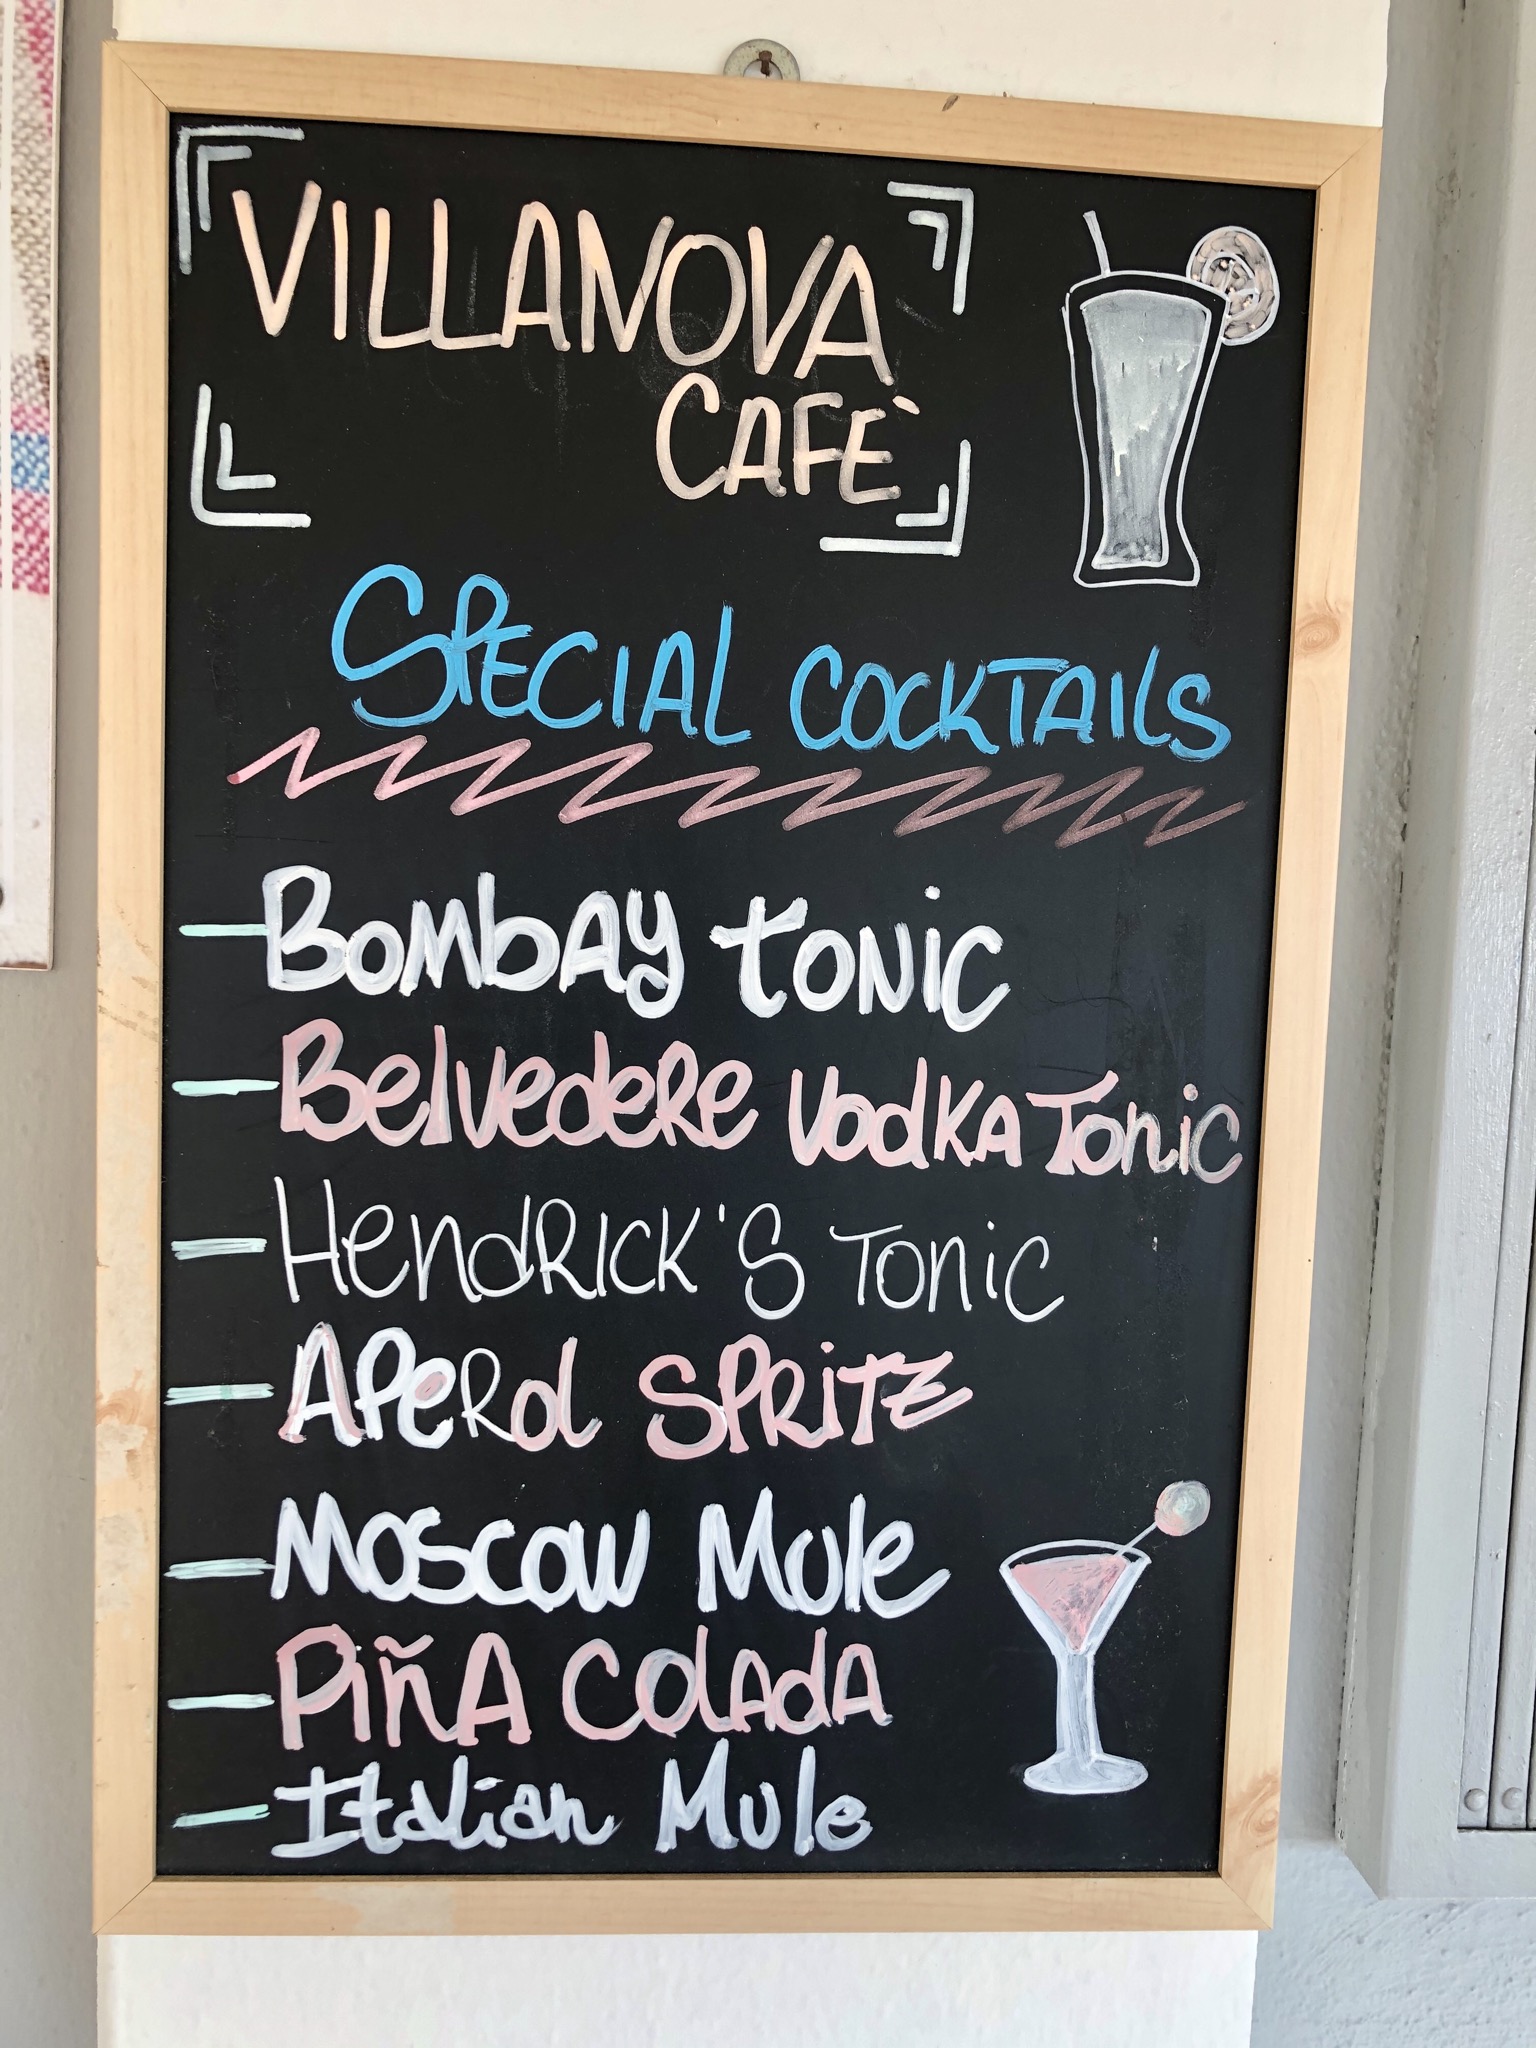 VILLANOVA
CAFE`
SPECIAL COCKTAILS
BOMBAY TONIC
Belvedere Vodka Tonic
HendRICK'S TONIC
APeRol SPRITZ
Moscow Mule
PiñA ColAdA
Italian Mule